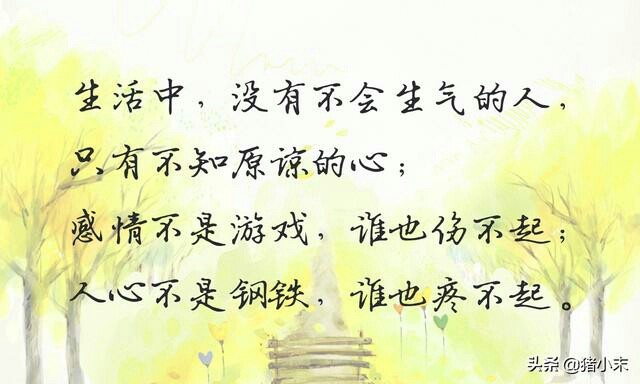 生活中，没有不会生气的人，
只有不知原谅的心；
感情不是游戏，谁也伤不起；
人心不是钢铁，谁也疼不起。
头条@猪小末